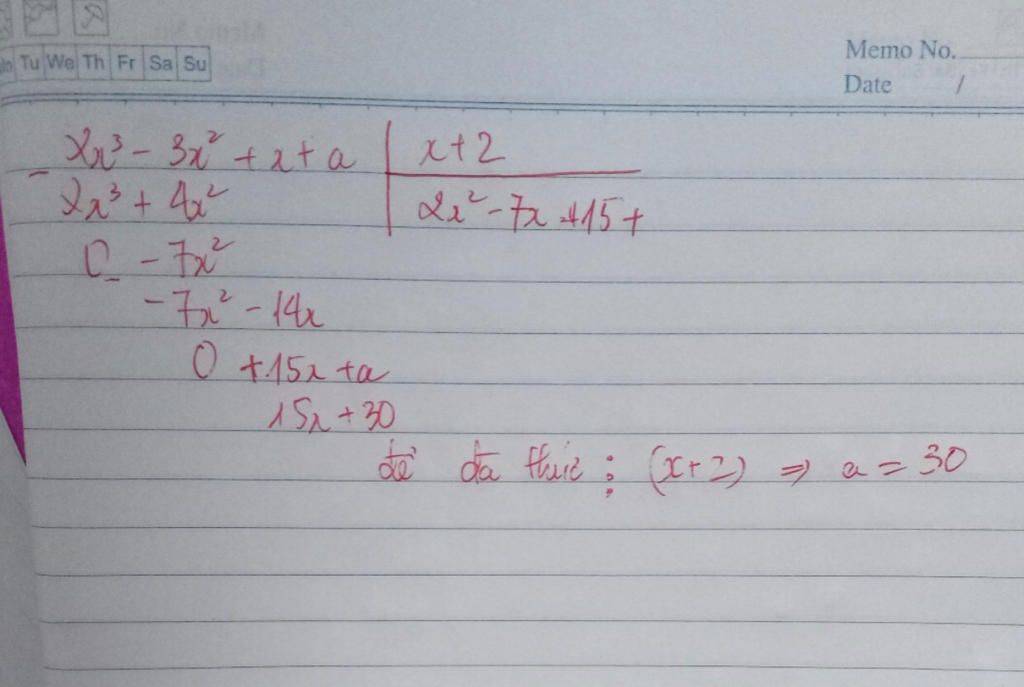 Tu We Th Fr Sa Su
Memo No.
Date /
2x³ - 3x² + x + a | x + 2
- 2x³ + 4x² | 2x² - 7x + 15 +
0 - 7x²
- - 7x² - 14x
0 + 15x + a
15x + 30
để đa thức ⋮ (x+2) ⇒ a = 30